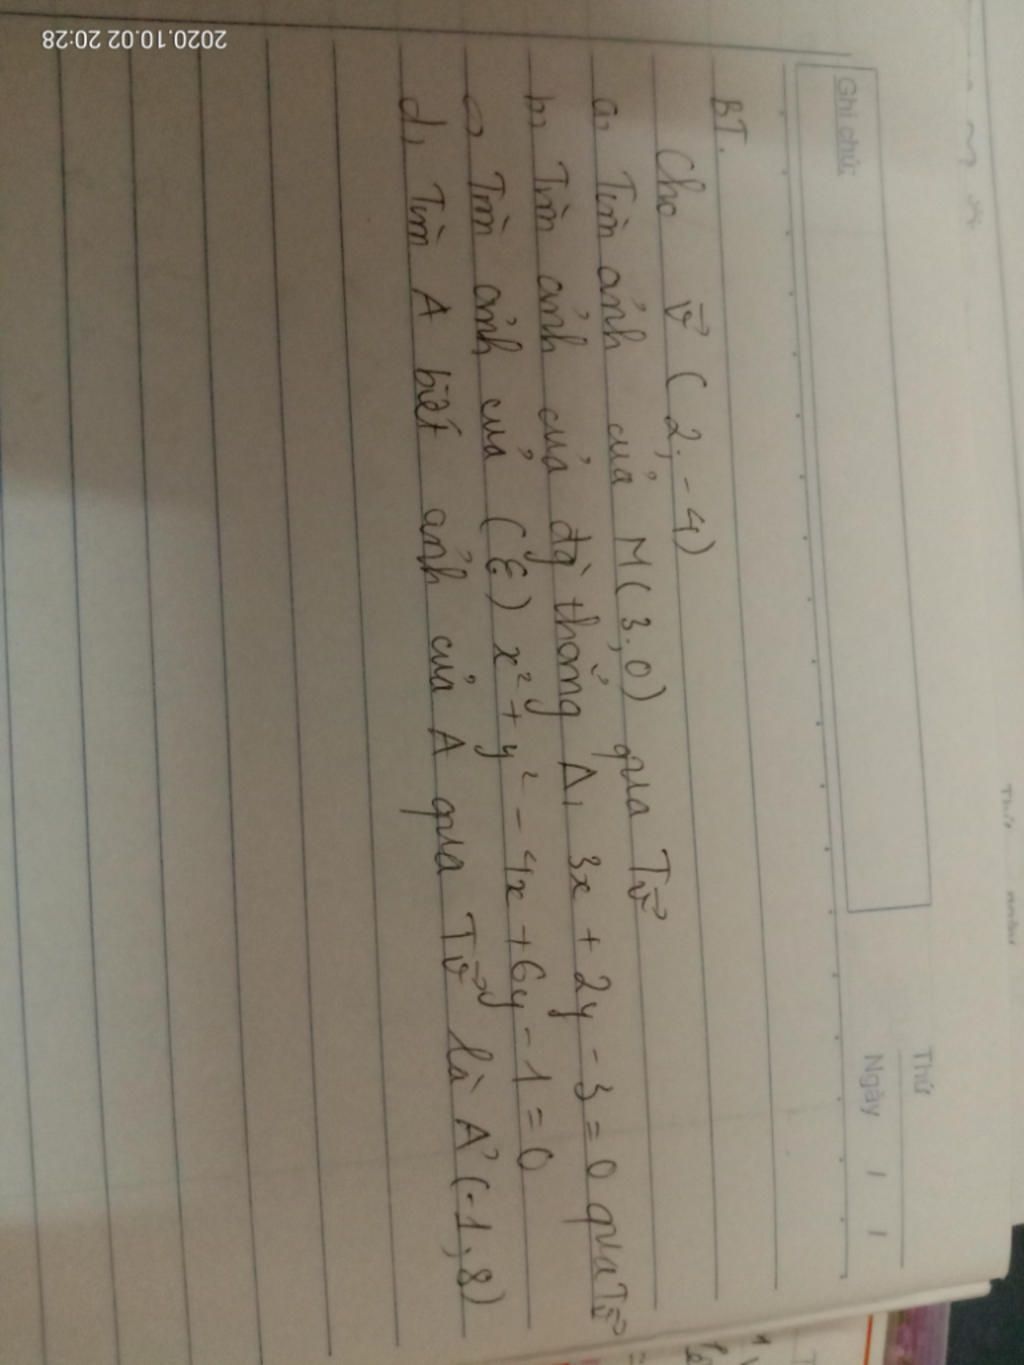 Ghi chú:
Thứ
Ngày / /
BT.
Cho v⃗ (2;-4)
a, Tìm ảnh của M(3;0) qua Tv⃗
b, Tìm ảnh của đg thẳng Δ, 3x + 2y - 3 = 0 qua Tv⃗
c, Tìm ảnh của (C) x² + y² - 4x + 6y - 1 = 0
d, Tìm A biết ảnh của A qua Tv⃗ là A'(-1,8)
2020.10.02 20:28